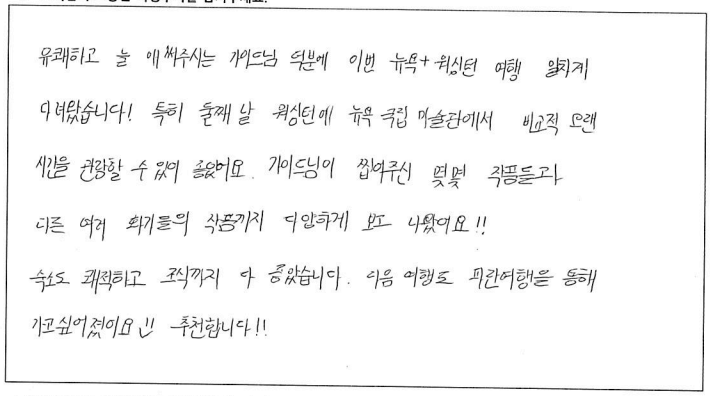 유쾌하고 늘 애써주시는 가이드님 덕분에 이번 뉴욕+워싱턴 여행 알차게
다녀왔습니다! 특히 둘째 날 워싱턴에 뉴욕 국립 미술관에서 비교적 오랜
시간을 관람할 수 있어 좋았어요. 가이드님이 찝어주신 몇몇 작품들과
다른 여러 화가들의 작품까지 다양하게 보고 나왔어요!!
숙소도 쾌적하고 조식까지 다 좋았습니다. 다음 여행도 파란여행을 통해
가고싶어졌어요!! 추천합니다!!